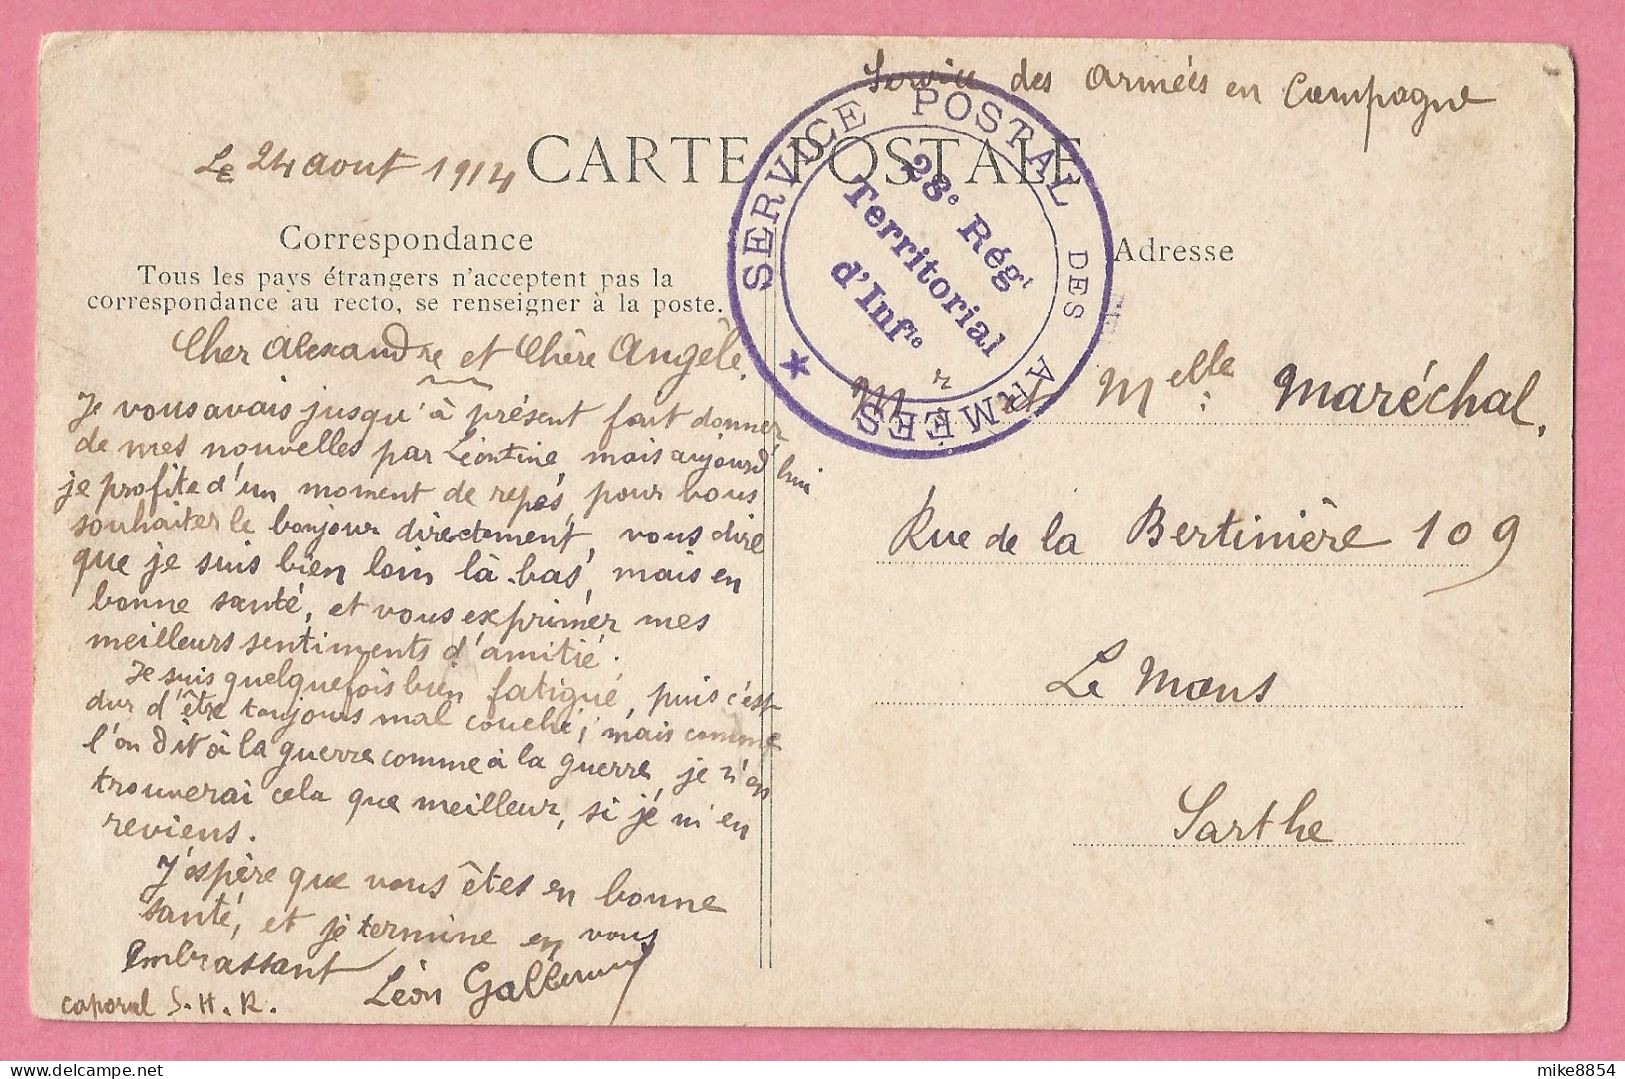 Service des Armées en Campagne
Le 24 aout 1914
CARTE POSTALE
SERVICE POSTAL DES ARMÉES
28e Régt
Territorial
d'Infie
Correspondance
Tous les pays étrangers n'acceptent pas la
correspondance au recto, se renseigner à la poste.
Adresse
Cher Alexandre et Chère Angèle.
Je vous avais jusqu'à présent fait donner
de mes nouvelles par Léontine, mais aujourd'hui
je profite d'un moment de repos, pour vous
souhaiter le bonjour directement, vous dire
que je suis bien loin là-bas, mais en
bonne santé, et vous exprimer mes
meilleurs sentiments d'amitié.
Je suis quelquefois bien fatigué, puis c'est
dur d'être toujours mal couché; mais comme
l'on dit à la guerre comme à la guerre, je n'en
trouverai cela que meilleur, si je m'en
reviens.
J'espère que vous êtes en bonne
santé, et je termine en vous
Embrassant
Léon
caporal S.H.R.
Mr et Melle: Maréchal.
Rue de la Bertinière 109
Le Mans
Sarthe
mike8854